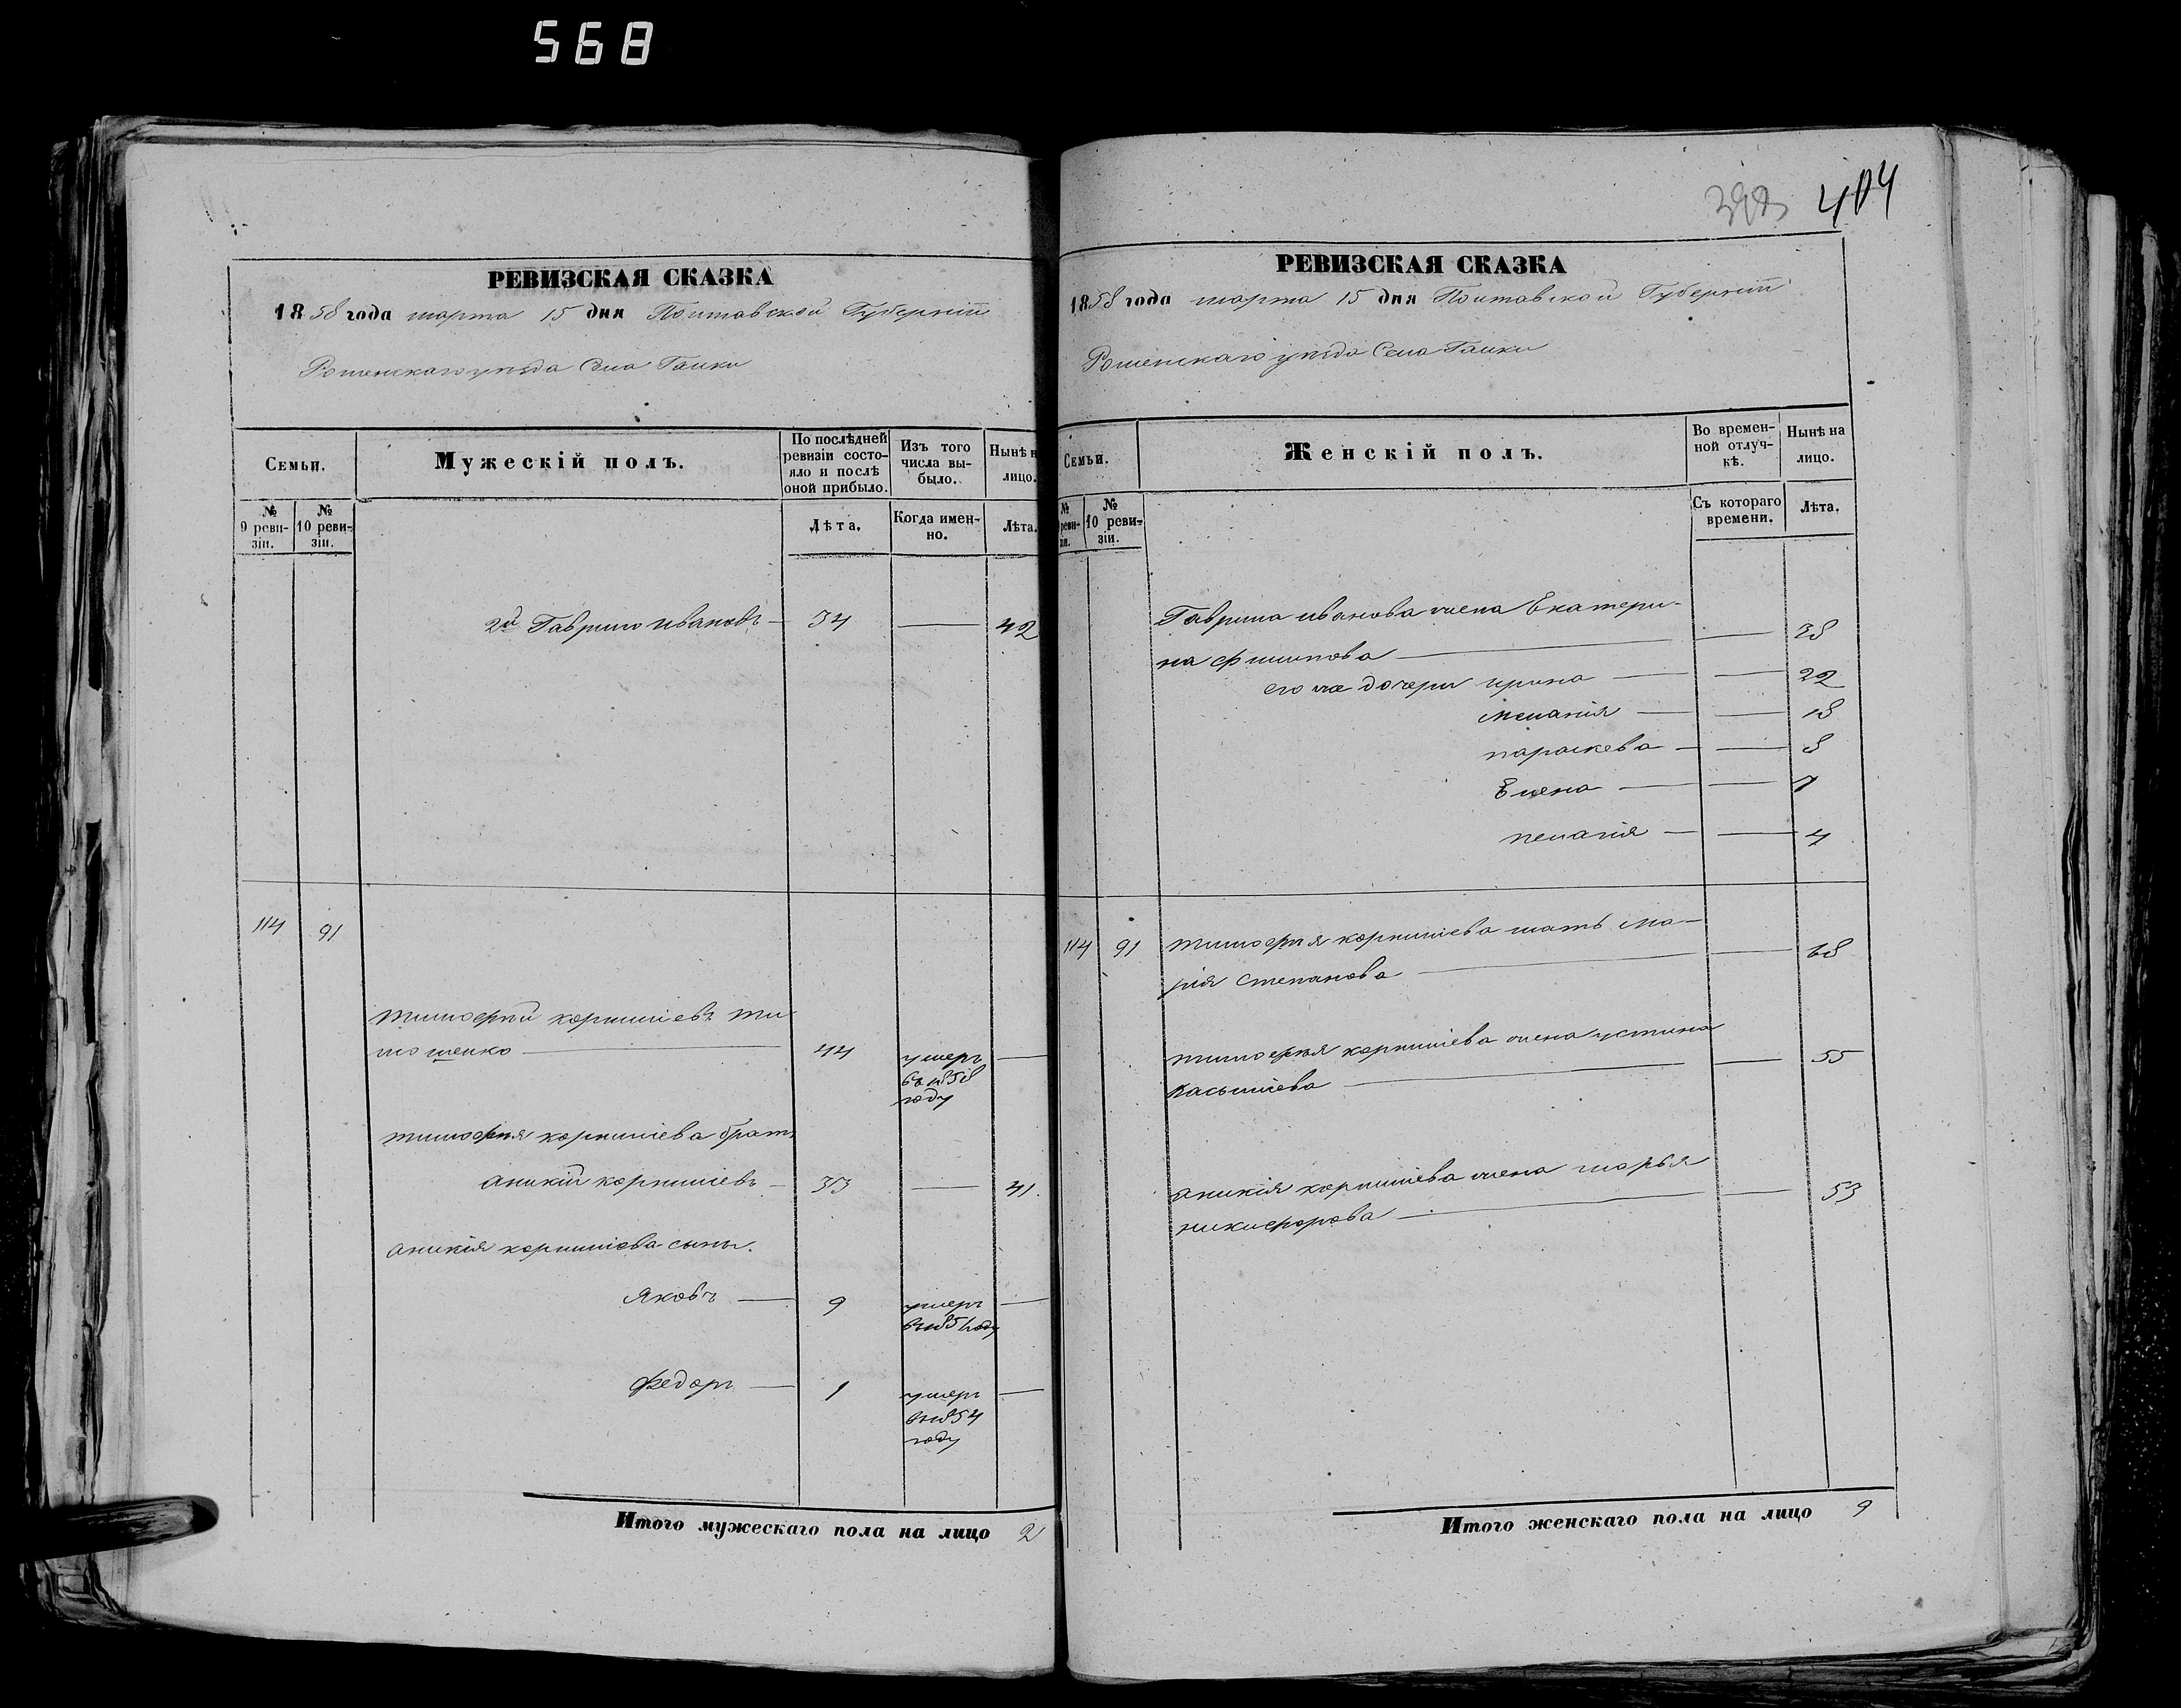 568
РЕВИЗСКАЯ СКАЗКА
1858 года марта 15 дня Полтавской Губерніи
Роменскаго уѣзда Села Галки
Семьи.
Мужескій полъ.
По послѣдней ревизіи состояло и послѣ оной прибыло.
Изъ того числа выбыло.
Нынѣ н
лицо.
№ 9 ревизіи.
№ 10 ревизіи.
Лѣта.
Когда именно.
Лѣта.
2й Гаврило Ивановъ — 34 — 42
114 91
Тимофѣй Корнилiевъ Ти-
мошенко — 44 умеръ въ 1858 году —
Тимофѣя Корнилiева братъ
Аникій Корнилiевъ — 33 — 41.
Аникія Корнилiева сыны.
Яковъ — 9 умеръ въ 1851 году —
Федоръ — 1 умеръ въ 1854 году —
Итого мужескаго пола на лицо 2
404
РЕВИЗСКАЯ СКАЗКА
1858 года марта 15 дня Полтавской Губерніи
Роменскаго уѣзда Села Галки
Семьи.
Женскій полъ.
Во временной отлучкѣ.
Нынѣ на лицо.
№ реви- зи.
№ 10 ревизіи.
Съ котораго времени.
Лѣта.
Гаврила Иванова жена Екатери-
на Филипова — — 38
его же дочери Ирина — — 22
Меланія — — 18
Параскева — — 8
Елена — — 7
Пелагія — — 4
114 91 Тимофѣя Корнилiева мать Ма-
рія Степанова — — 68
Тимофѣя Корнилiева жена Устина
Касьянiева — — 55
Аникія Корнилiева жена Марья
Никифорова — — 53
Итого женскаго пола на лицо 9